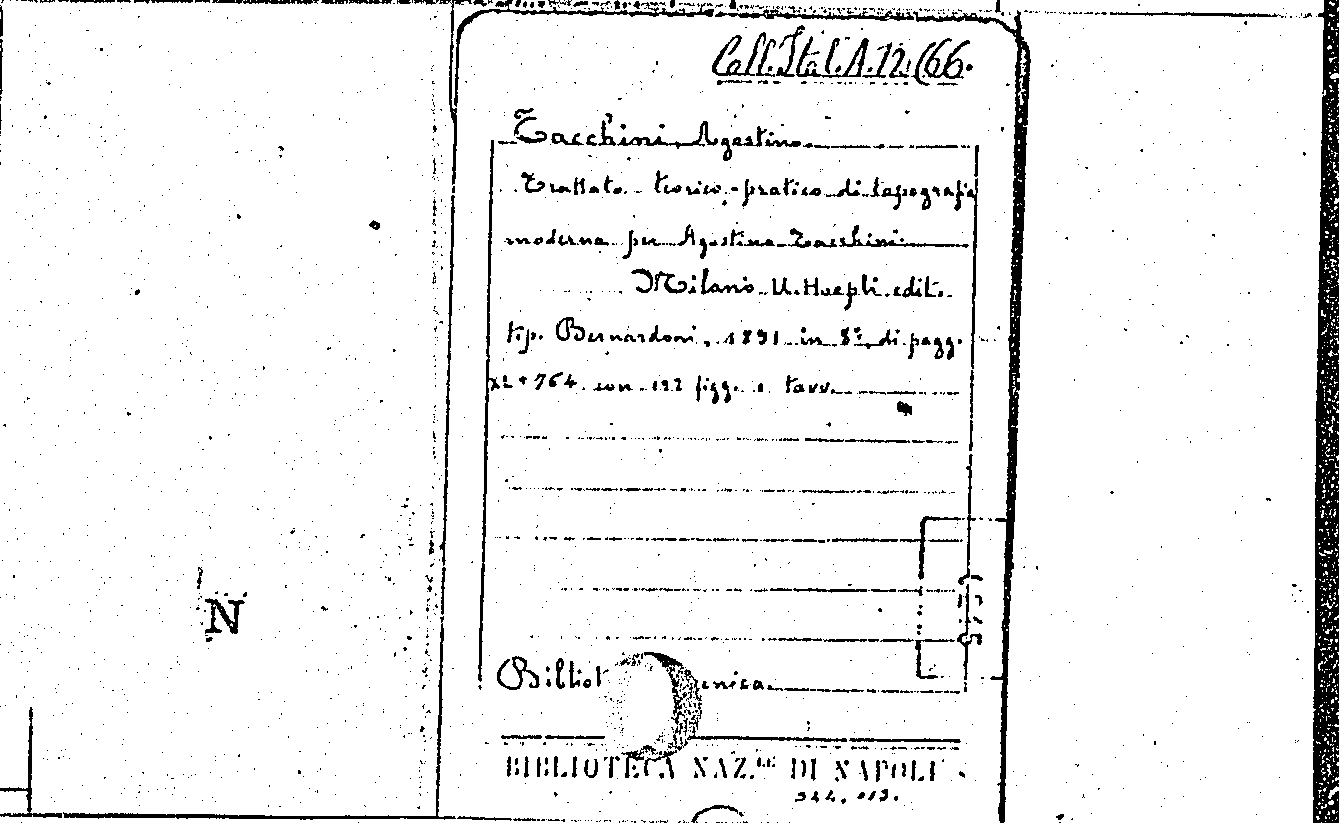 Coll. Ital. A. 12. (66.
Tacchini, Agostino.
Trattato teorico-pratico di topografia
moderna per Agostino Tacchini.
Milano U. Hoepli edit.
tip. Bernardoni, 1891 in 8º di pagg.
XL + 764 con 122 figg. e tavv.
Bibliot enica.
BIBLIOTECA NAZ.LE DI NAPOLI
N